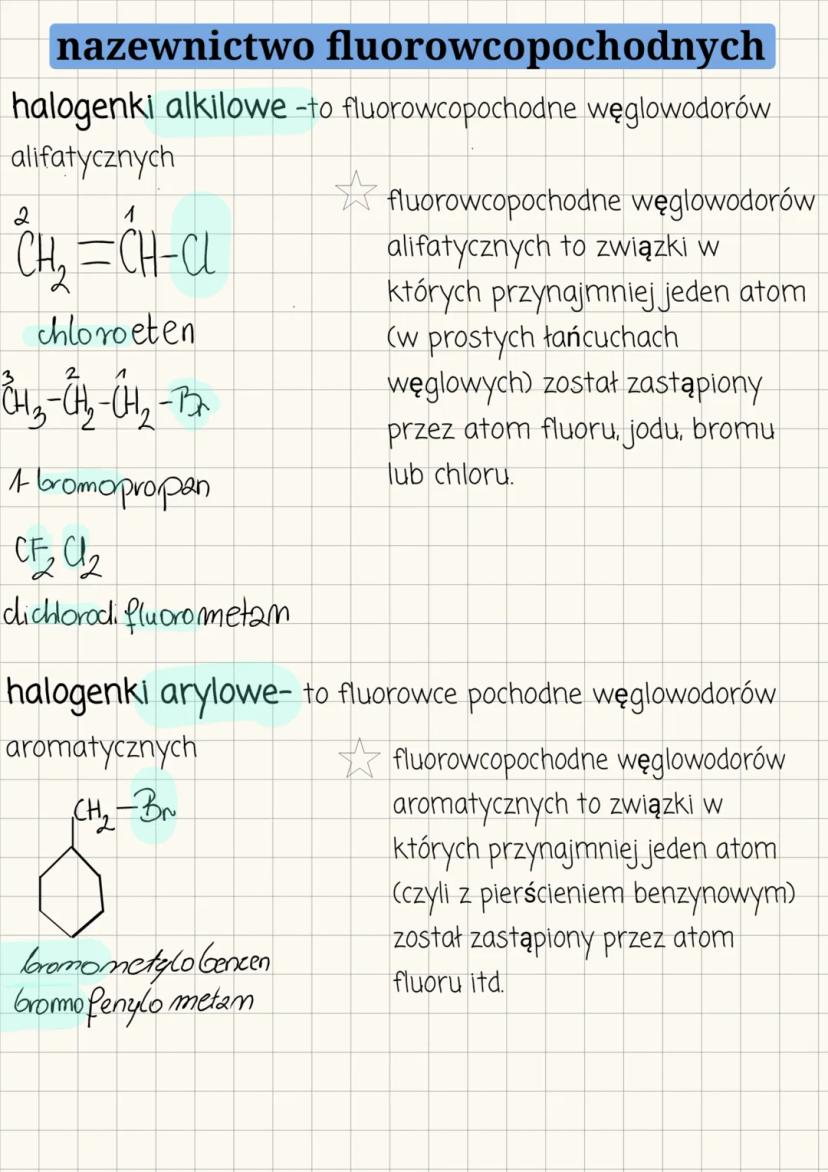 nazewnictwo fluorowcopochodnych
halogenki alkilowe -to fluorowcopochodne węglowodorów
alifatycznych
2 1
CH₂=CH-Cl
chloroeten
3 2 1
CH₃-CH₂-CH₂-Br
1-bromopropan
CF₂Cl₂
dichlorodifluorometan
fluorowcopochodne węglowodorów
alifatycznych to związki w
których przynajmniej jeden atom
(w prostych łańcuchach
węglowych) został zastąpiony
przez atom fluoru, jodu, bromu
lub chloru.
halogenki arylowe- to fluorowce pochodne węglowodorów
aromatycznych
CH₂-Br
bromometylobenzen
bromofenylometan
fluorowcopochodne węglowodorów
aromatycznych to związki w
których przynajmniej jeden atom
(czyli z pierścieniem benzynowym)
został zastąpiony przez atom
fluoru itd.